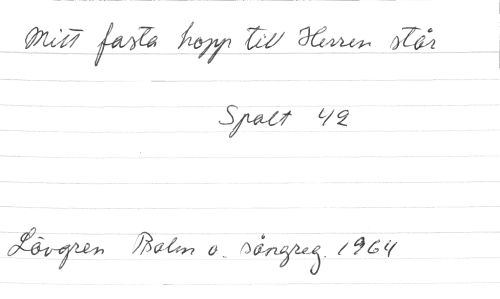 Mitt fasta hopp till Herren står
Spalt 42
Lövgren Psalm o. sångreg. 1964